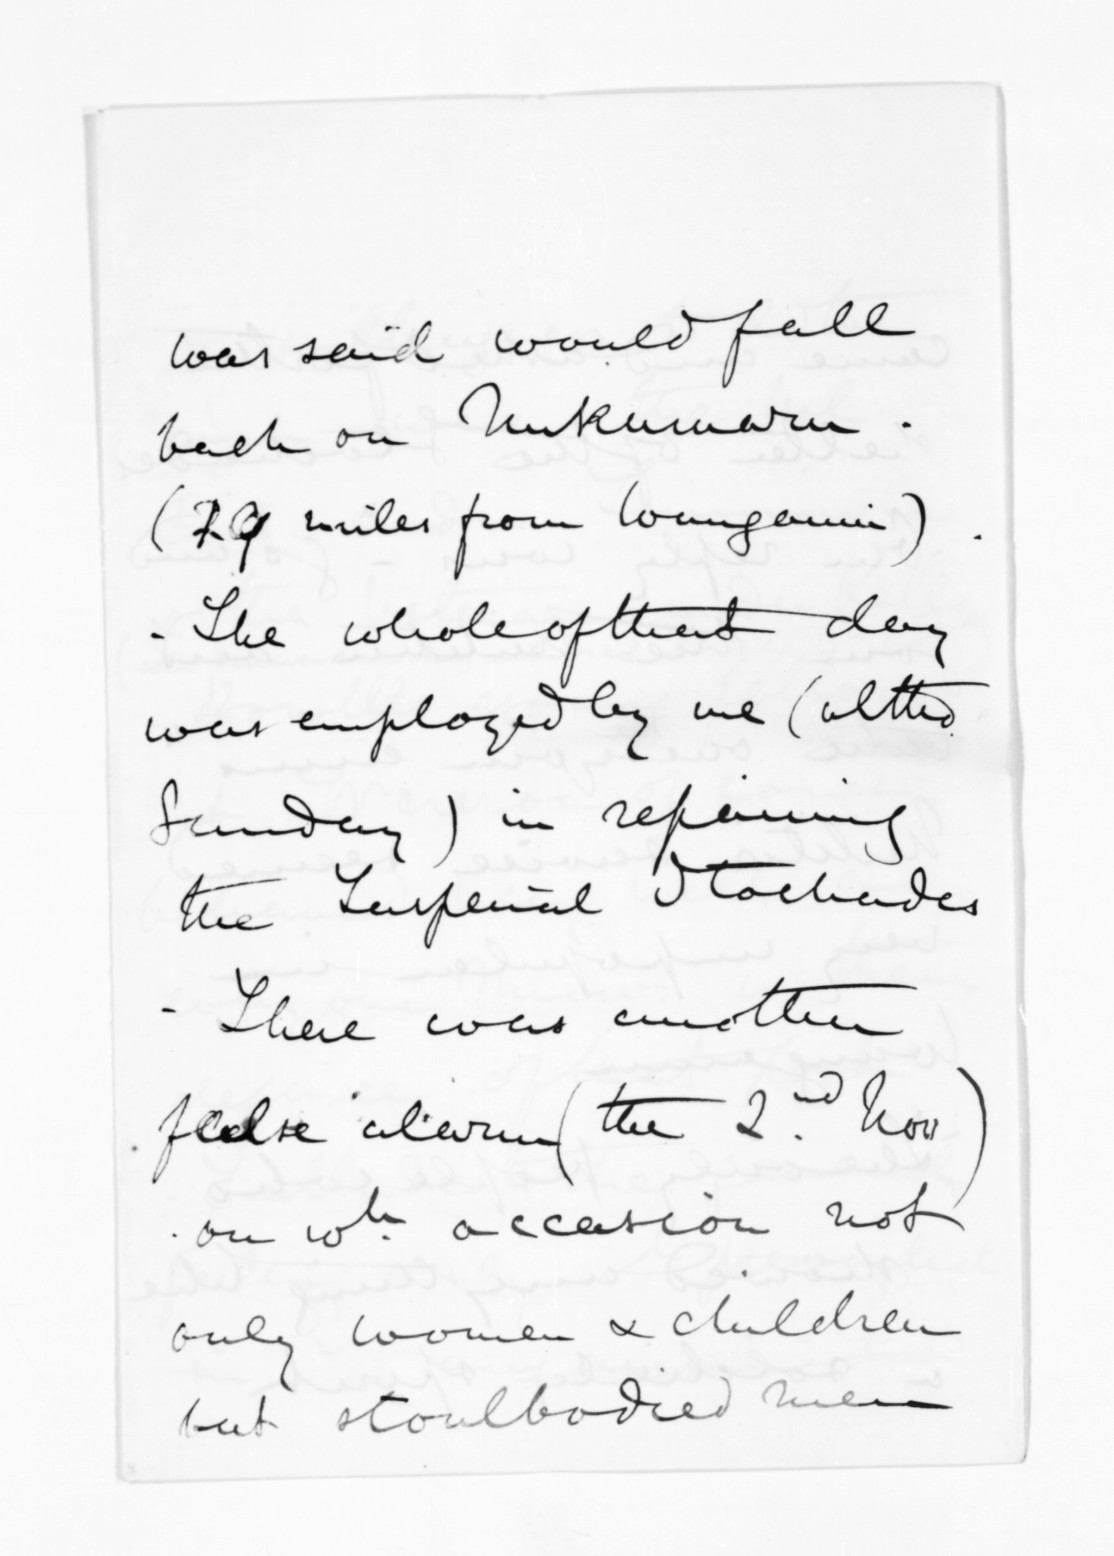 was said would fall
back on Nukumaru.
(29 miles from Wanganui).
- The whole of that day
was employed by me (altho
Sunday) in repairing
the Imperial Stockades
- There was another
false alarm (the 2.nd Nov)
on wh. occasion not
only women & children
but stoutbodied men